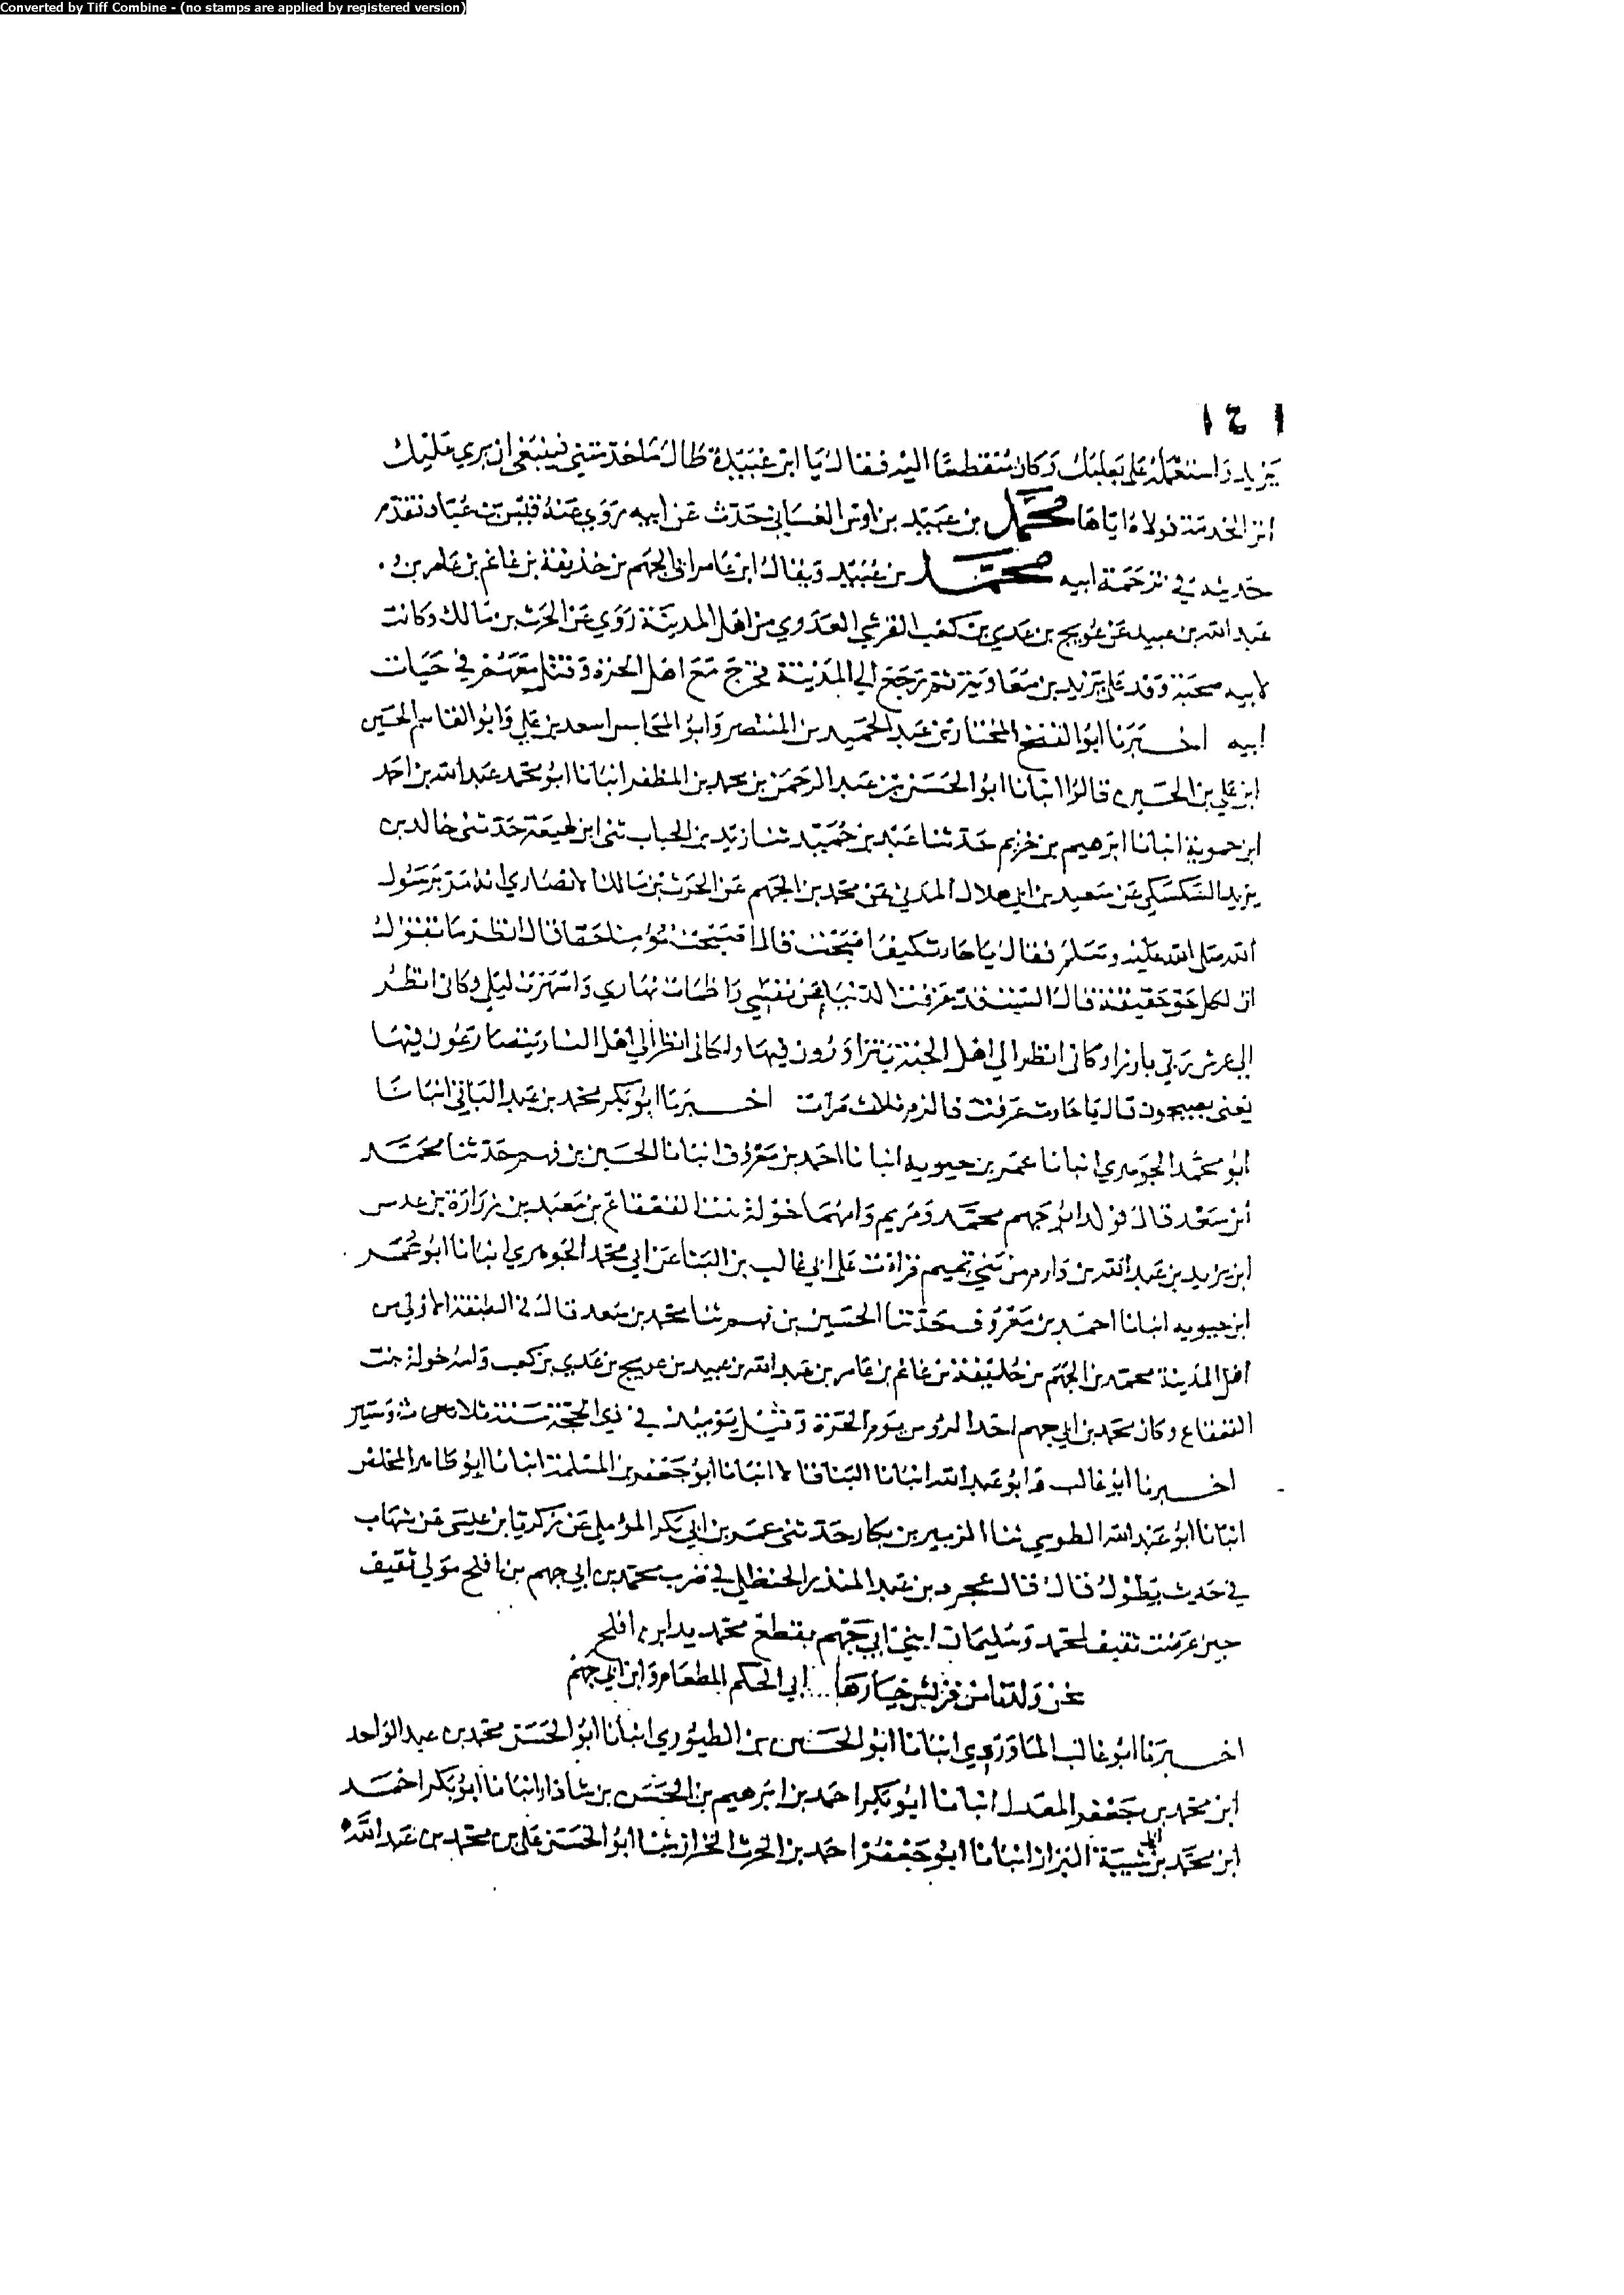 Converted by Tiff Combine - (no stamps are applied by registered version)
١٤١
يزيد واستعمله على بعلبك وكان منقطعا اليه فقال يا ابن عبيدة طال ما خدمتني فينبغي ان يري عليك
اثر الخدمة فولاه اياها محمد بن عبيد بن اوس الغساني حدث عن ابيه روي عنه قيس بن عباد تقدم
حديثه في ترجمة ابيه محمد بن عبيد ويقال ابن عامر ابي الجهم بن حذيفة بن غانم بن عامر بن
عبد الله بن عبيد عن عويج بن عدي بن كعب القرشي العدوي من اهل المدينة روي عن الحرث بن مالك وكانت
لابيه صحبة وفد على يزيد بن معاوية ثم رجع الي المدينة فخرج مع اهل الحرة وقتل معهم في حيات
ابيه اخبرنا ابو الفتح المختار بن عبد الحميد بن المنتصر وابو المحاسن اسعد بن علي وابو القاسم الحسين
ابن علي بن الحسين قالوا انبانا ابو الحسن بن عبد الرحمن بن محمد بن المظفر انبانا ابو محمد عبد الله بن احمد
ابن حموية انبانا ابرهيم بن خزيم حدثنا عبد بن حميد ثنا زيد بن الحباب ثني ابن لهيعة حدثني خالد بن
يزيد السكسكي عن سعيد بن ابي هلال المدني عن محمد بن الجهم عن الحرث بن مالك الانصاري انه مر برسول
الله صلى الله عليه وسلم فقال يا حارث كيف اصبحت قال اصبحت مؤمنا حقا قال انظر ما تقول
ان لكل حق حقيقة قال الست قد عزفت الدنيا عن نفسي واظمات نهاري واسهرت ليلي وكاني انظر
الي عرش ربي بارزا وكاني انظر الي اهل الجنة يتزاورون فيها ولكاني انظر الي اهل النار يتضارعون فيها
يعني يصيحون قال يا حارث عرفت فالزم ثلاث مرات اخبرنا ابو بكر محمد بن عبد الباقي انبانا
ابو محمد الجوهري انبانا عمر بن حيويه انبانا احمد بن معروف انبانا الحسين بن فهم حدثنا محمد
ابن سعد قال فولد ابو جهم محمد ومريم وامهما خولة بنت القعقاع بن معبد بن زرارة بن عدس
ابن يزيد بن عبد الله بن دارم من بني تميم قرات على ابي غالب بن البنا عن ابي محمد الجوهري انبانا ابو عمر
ابن حيويه انبانا احمد بن معروف حدثنا الحسين بن فهم ثنا محمد بن سعد قال في الطبقة الاولي من
اهل المدينة محمد بن الجهم بن خليفة بن غانم بن عامر بن عبد الله بن عبيد بن عويج بن عدي بن كعب وامه خولة بنت
القعقاع وكان محمد بن ابي جهم احد الروس يوم الحرة وقتل يومئذ في ذي الحجة سنة ثلاث وستين
اخبرنا ابو غالب وابو عبد الله انبانا البنا قالا انبانا ابو جعفر بن المسلمة انبانا ابو طاهر المخلص
انبانا ابو عبد الله الطوسي ثنا الزبير بن بكار حدثني عمر بن ابي بكر المؤملي عن زكريا بن عيسى عن شهاب
في حديث يطول قال قال عجرد بن عبد المنذر الحنظلي في ضرب محمد بن ابي جهم بن نافلح مولي ثقيف
حين عرضت ثقيف لمحمد وسليمان ابني ابي جهم بقطع محمد يد ابن افلح
نحن ولدنا من قريش خيارها ... ابي الحكم المطعام وابن ابي جهم
اخبرنا ابو غالب الماوردي انبانا ابو الحسين بن الطيوري انبانا ابو الحسن محمد بن عبد الواحد
ابن محمد بن جعفر المعدل انبانا ابو بكر احمد بن ابرهيم بن الحسن بن شاذان انبانا ابو بكر احمد
ابن محمد بن ابي شيبة البزاز انبانا ابو جعفر احمد بن الحرث الخراز ثنا ابو الحسن علي بن محمد بن عبد الله